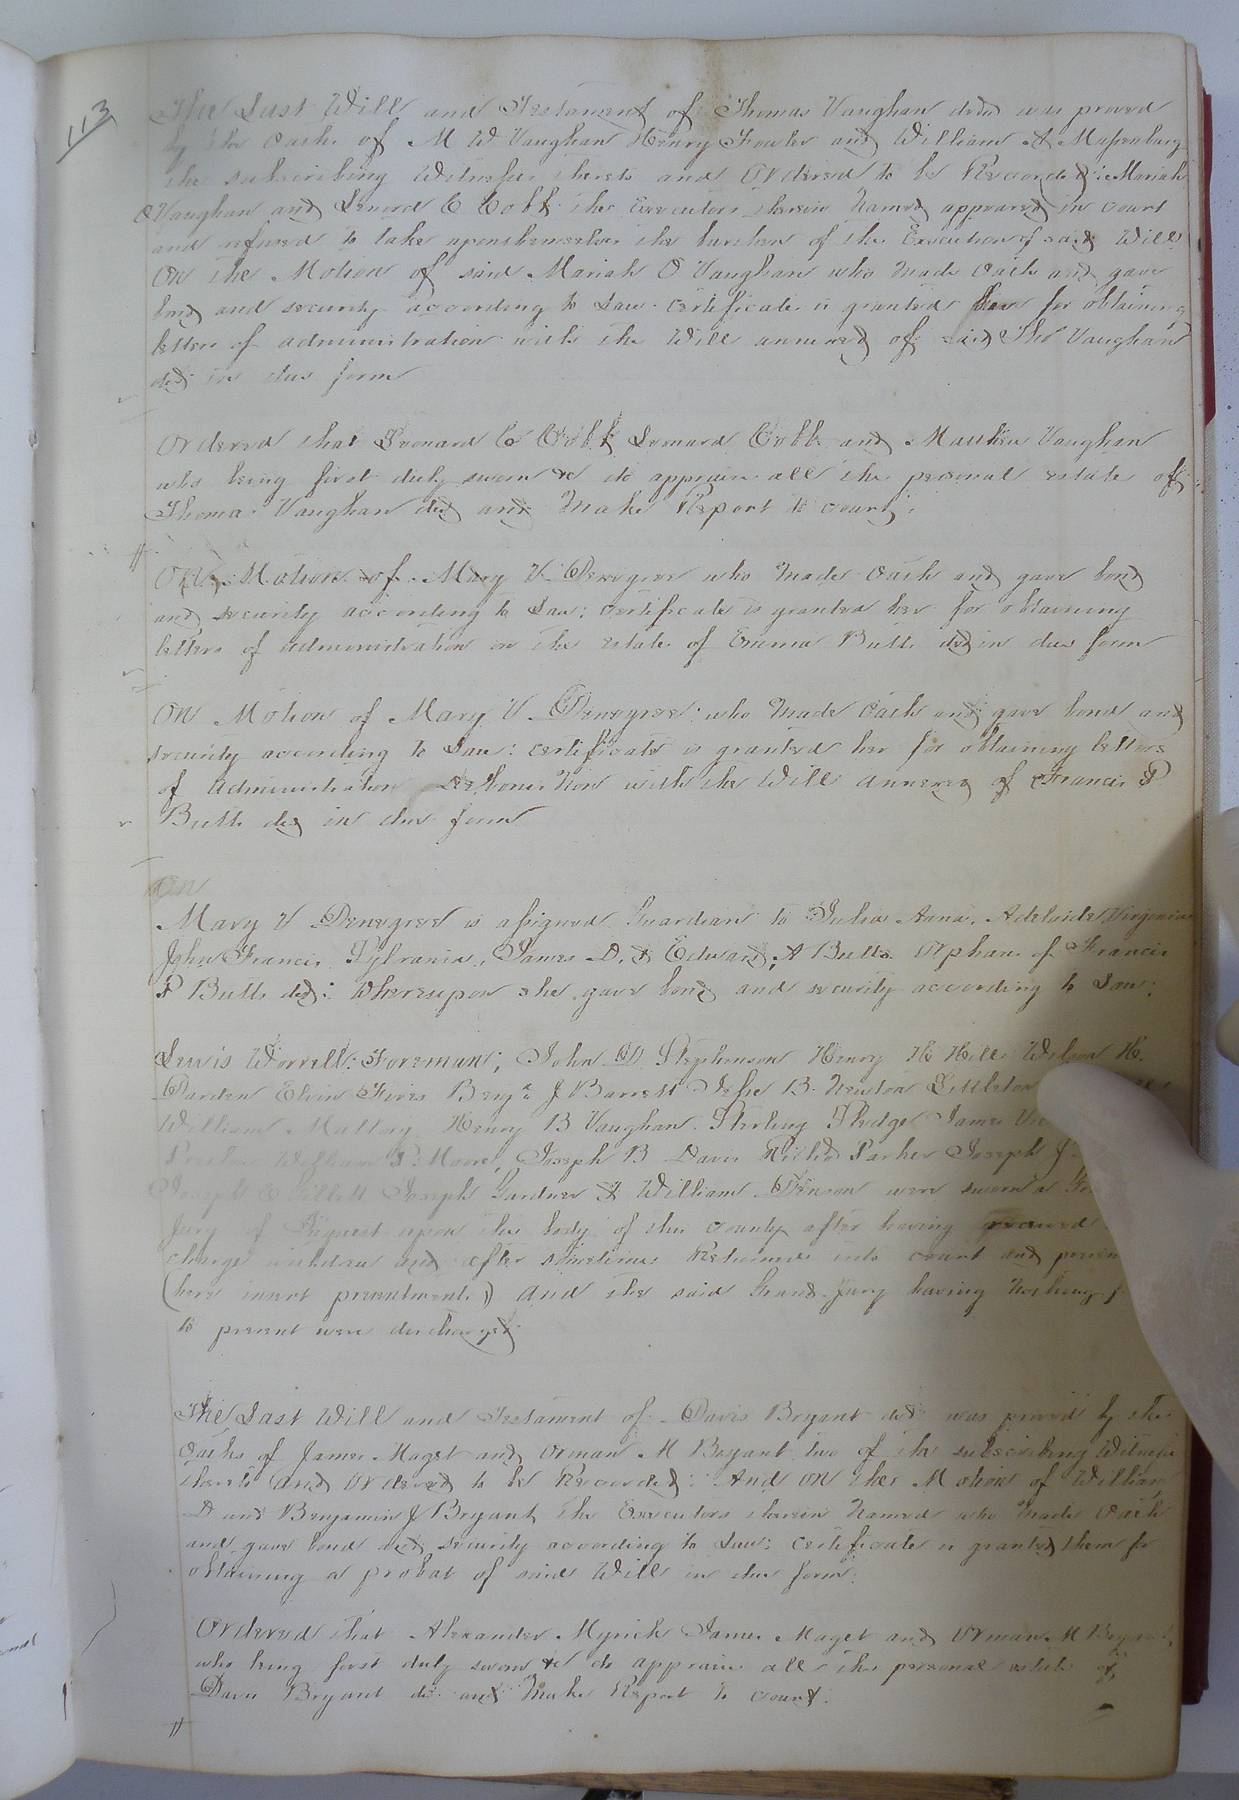 113
The Last Will and Testament of Thomas Vaughan decd was proved
by the oaths of M W Vaughan Henry Fowler and William A Massenburg
the subscribing Witnesses thereto and Ordered to be Recorded: Mariah
O Vaughan and Lenord C Cobb the Executors therein Named appeared in court
and refused to take uponthemselves the burthen of the Execution of said Will
On the Motion of said Mariah O Vaughan who made Oath and gave
bond and security according to Law certificate is granted her for obtaining
letters of administration with the Will annexed of said Tho Vaughan
decd in due form
Ordered that Leonard C Cobb Leonard Cobb and Matthew Vaughan
who being first duly sworn &c do appraise all the personal estate of
Thomas Vaughan decd and Make Report to court;
On Motion of Mary V Denegree who made Oath and gave bond
and security according to Law: certificate is granted her for obtaining
letters of administration on the estate of Emma Butts decd in due form
On Motion of Mary V Denegree who made Oath and gave bond and
security according to Law: certificate is granted her for obtaining letters
of administration De bonis Non with the Will annexed of Francis P
Butts decd in due form
On
Mary V Denegree is assigned Guardian to Julia Anna, Adelaide, Virginia
John Francis, Sylvania, James D, & Edward, A Butts Orphans of Francis
P Butts decd: Whereupon she gave bond and security according to Law:
Lewis Worrell: Foreman; John D Stephenson Henry H Hill Wilson H.
Darden Elvin Fires Benja J Barrett Jesse B. Newton Littleton
William Mallory Henry B Vaughan. Sterling Pledge James
William P. Moore, Joseph B Davis Richd Parker Joseph J
Joseph C Gillett Joseph Gardner & William Vinson were sworn a
Jury of Inquest upon the body of this county after having received
charge withdrew and after sometime Returned into court and
(here insert presentments) and the said Grand Jury having Nothing
to present were discharged
The Last Will and Testament of Davis Bryant decd was proved by the
Oaths of James Maget and Orman M Bryant two of the subscribing Witnesses
thereto and Ordered to be Recorded: And on the Motion of William
D and Benjamin J Bryant the Executors therein Named who Made Oath
and gave bond and security according to Law: certificate is granted them for
obtaining a probat of said Will in due form:
Ordered that Alexander Myrick James Maget and Orman M Bryant,
who being first duly sworn &c do appraise all the personal estate of
Davis Bryant decd and Make Report to court.